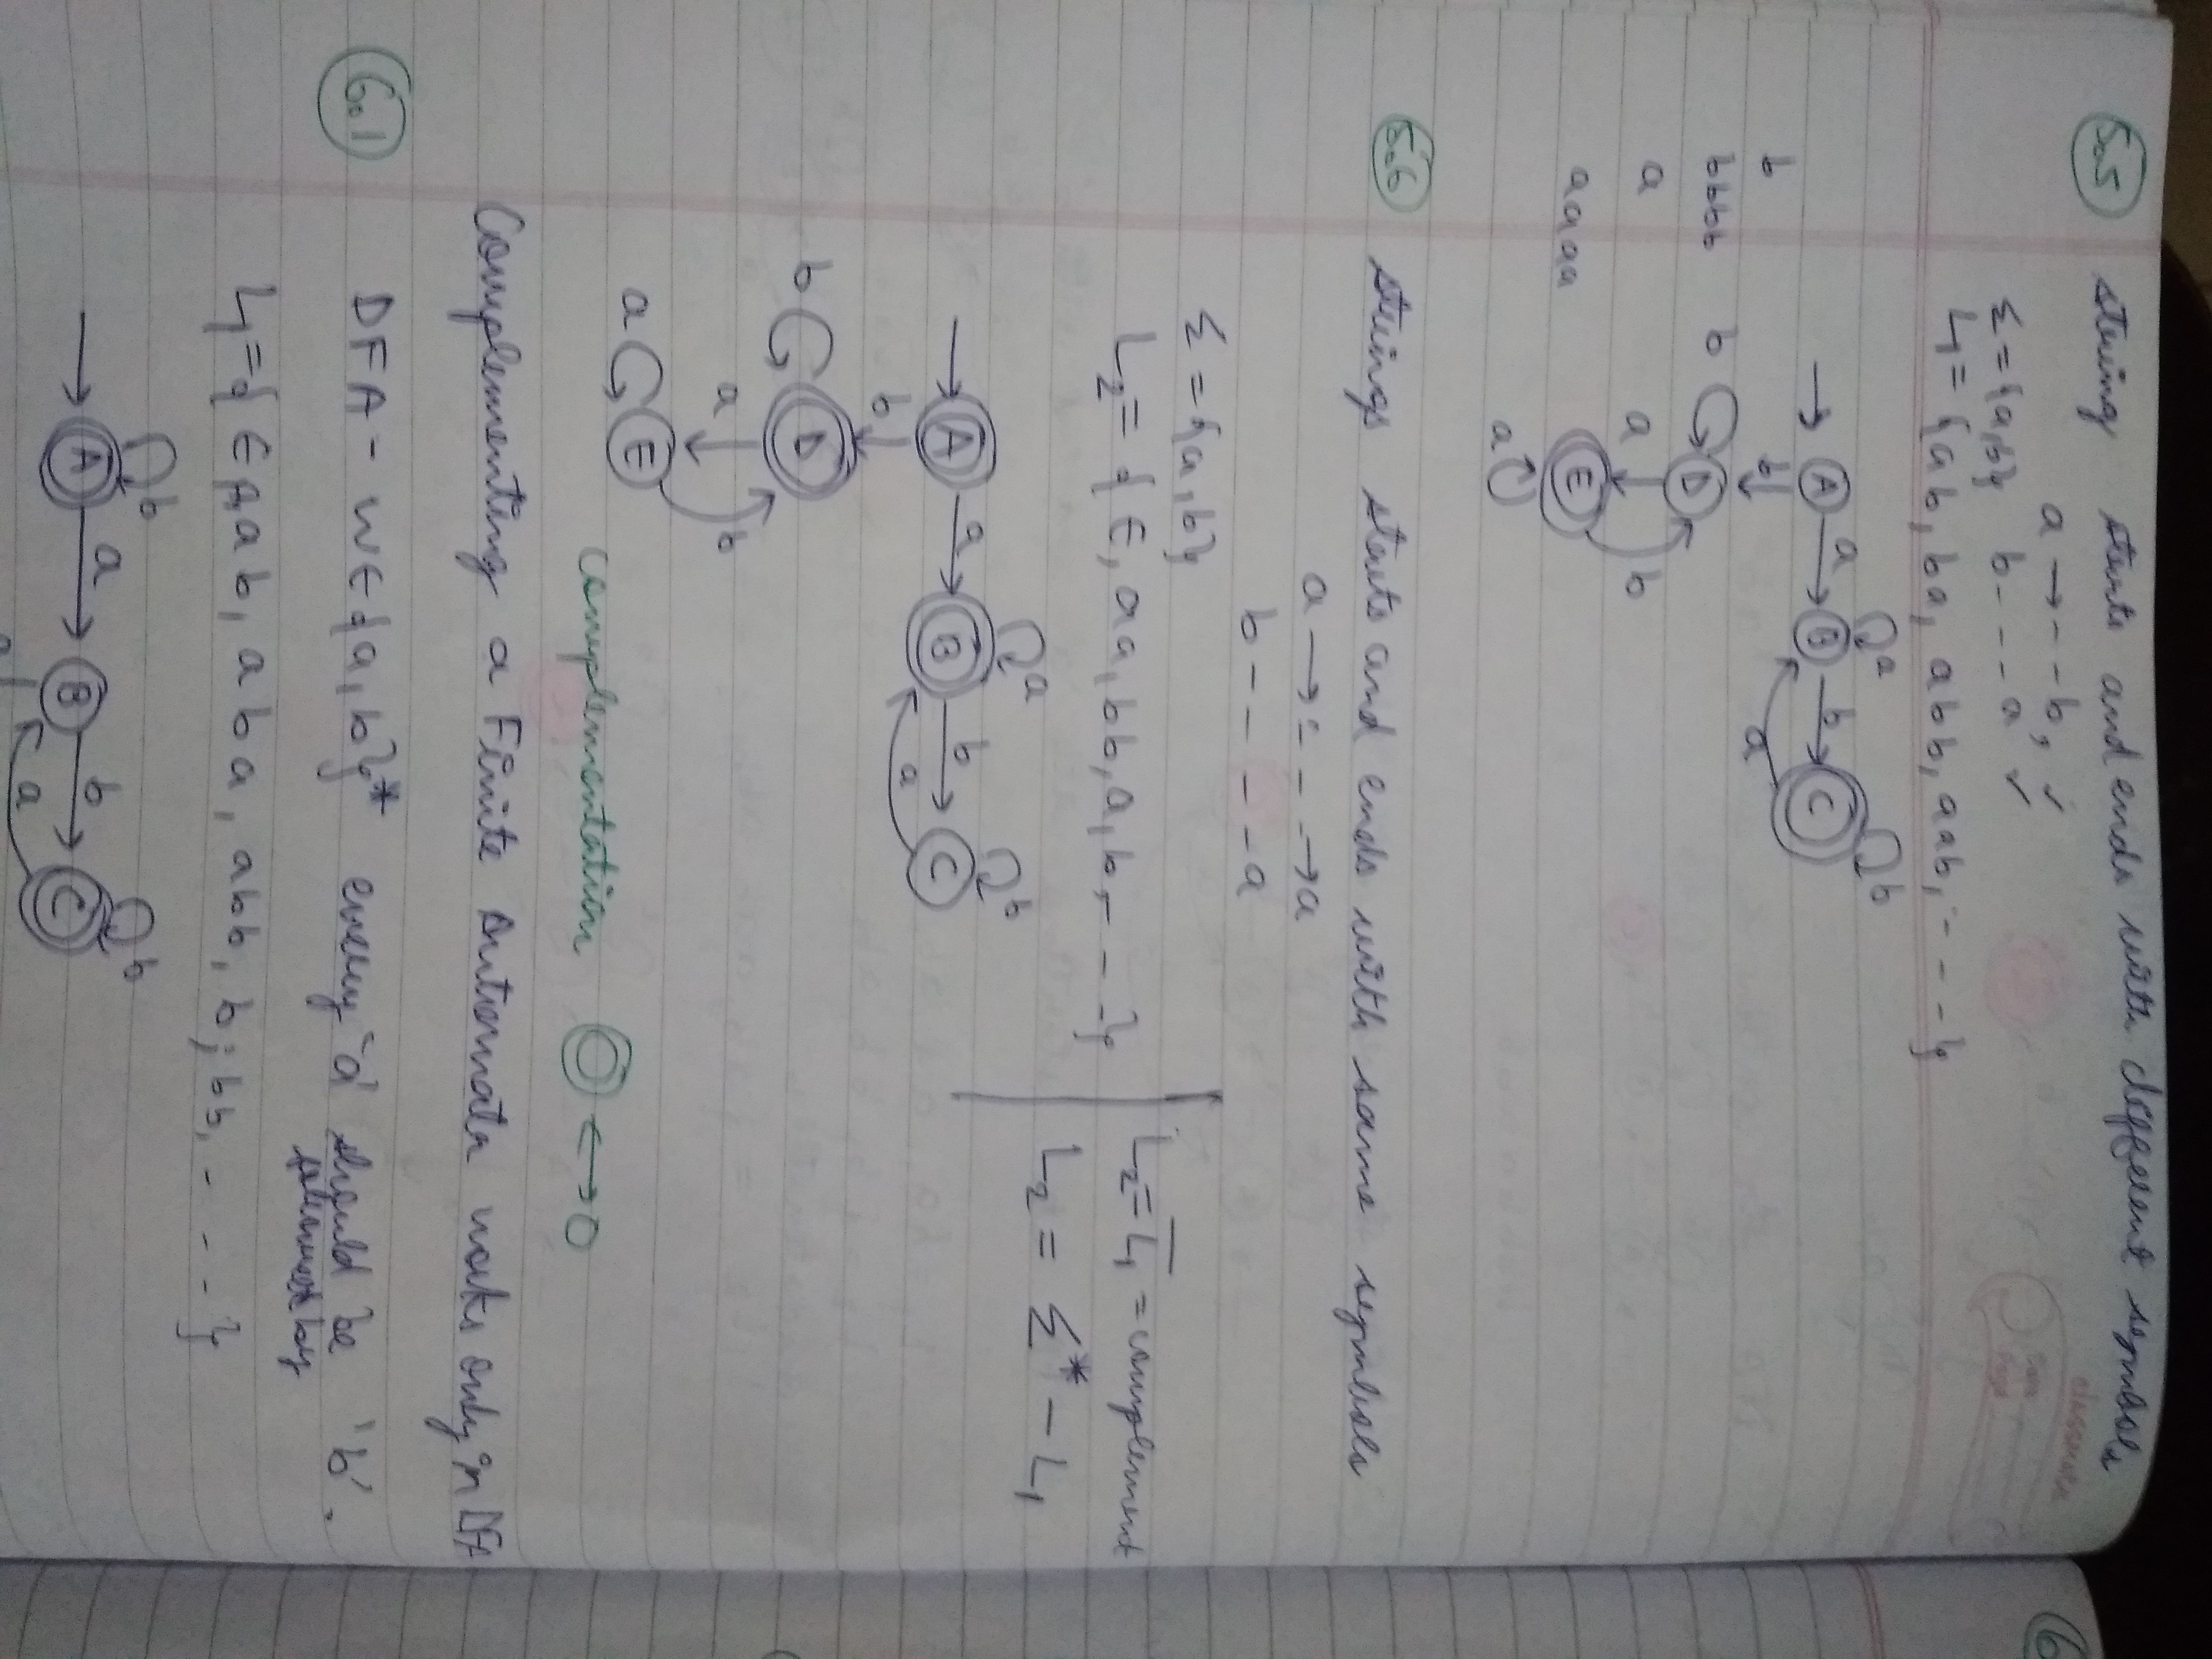 classmate
Date
Page
5.5 string starts and ends with different symbols
a → - - b, ✓
Σ = {a,b} b - - - a ✓
L1 = {ab, ba, abb, aab, - - - }
→ A a B a b C b a
b b
bbbb b D
a a b
aaaa E a
5.6 strings starts and ends with same symbols
a → - - → a
b - - - - a
Σ = {a,b}
L2 = { ϵ, aa, bb, a, b, - - - }
L2 = L̅1 = complement
L2 = Σ* - L1
→ A a B a b C b a
b
b D
a b
a E
Complementation ◎ ⟷ O
Complementing a Finite Automata works only in DFA
6.1 DFA - w ϵ {a,b}* every 'a' should be 'b'.
L1 = { ϵ ab, aba, abb, b, bb, - - - }
→ A b a B b C b
a a
6